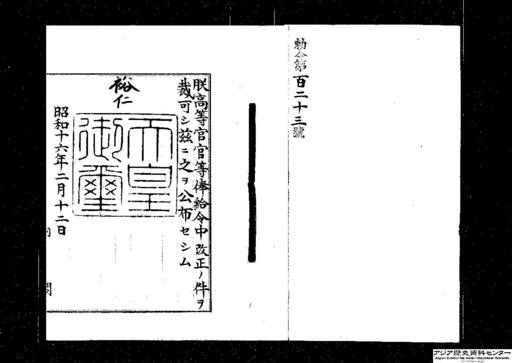 勅令第百二十三號
朕高等官官等俸給令中改正ノ件ヲ
裁可シ茲ニ之ヲ公布セシム
裕仁
天皇
御璽
昭和十六年二月十二日
アジア歴史資料センター
Japan Center for Asian Historical Records